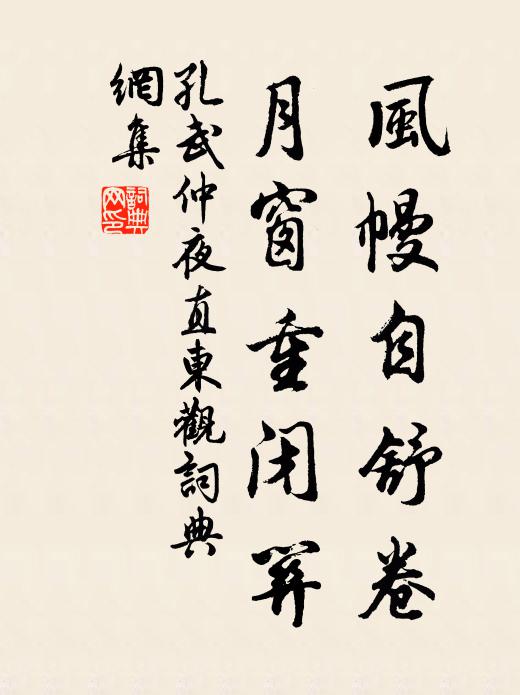 風幔自舒卷
月窗重閉開
孔武仲夜直東觀詞典
網集
詞典網印